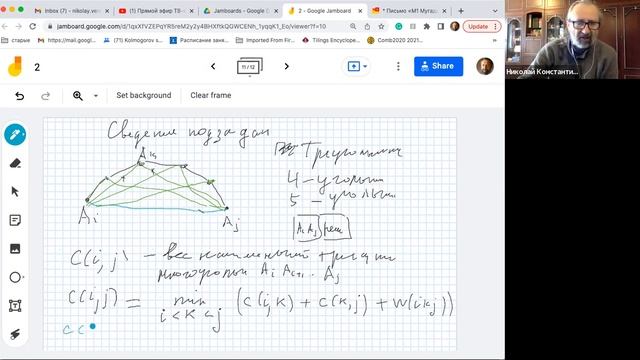 Inbox (7) - nikolay.ve
(1) Прямой эфир ТВ -
Jamboards - Google
2 - Google Jamboard
* Письмо «М1 Мутац
jamboard.google.com/d/1qxXfVZEPqYR5reM2y2y4BHXftkQGWCENh_1yqqK1_Eo/viewer?f=10
Update
старые
https://mail.googl...
(71) Kolmogorov s...
Расписание занят...
Imported From Fire...
Imported From Fire...
Tilings Encyclope...
Comb2020 2021...
2
11 / 12
Share
Set background
Clear frame
Николай Константи...
Сведение подзадач
Треугольники
4 - угольники
5 - угольники
Ai
Aj
Ai Aj
C(i, j) - вес наименьшей триан
многоугольн Ai Ai+1 .. Aj
C(i, j) = min (C(i, k) + C(k, j) + W(i k j))
i < k < j
C (